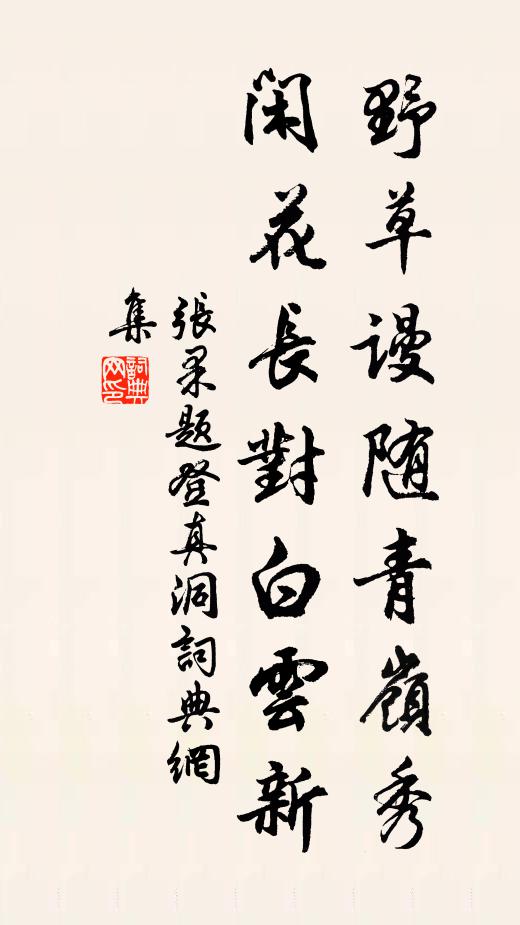 野草謾随青嶺秀
閑花長對白雲新
張果題登真洞詞典網
集
詞典
网印